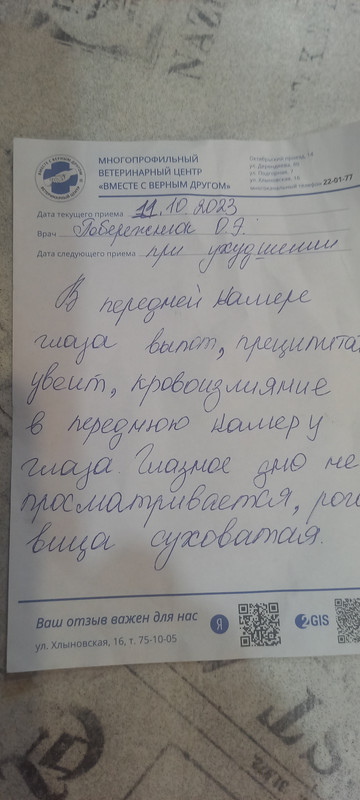 МНОГОПРОФИЛЬНЫЙ
ВЕТЕРИНАРНЫЙ ЦЕНТР
«ВМЕСТЕ С ВЕРНЫМ ДРУГОМ»
Октябрьский
многоканальный телефон 22-01-77
Дата текущего приема 11.10.2023
Врач
Дата следующего приема при ухудшении
В передней камере
глаза выпот, преципита
увеит, кровоизлияние
в переднюю камеру
глаза. Глазное дно не
просматривается, рого
вица суховатая.
Ваш отзыв важен для нас
Я
2GIS
ул. Хлыновская, 16, т. 75-10-05